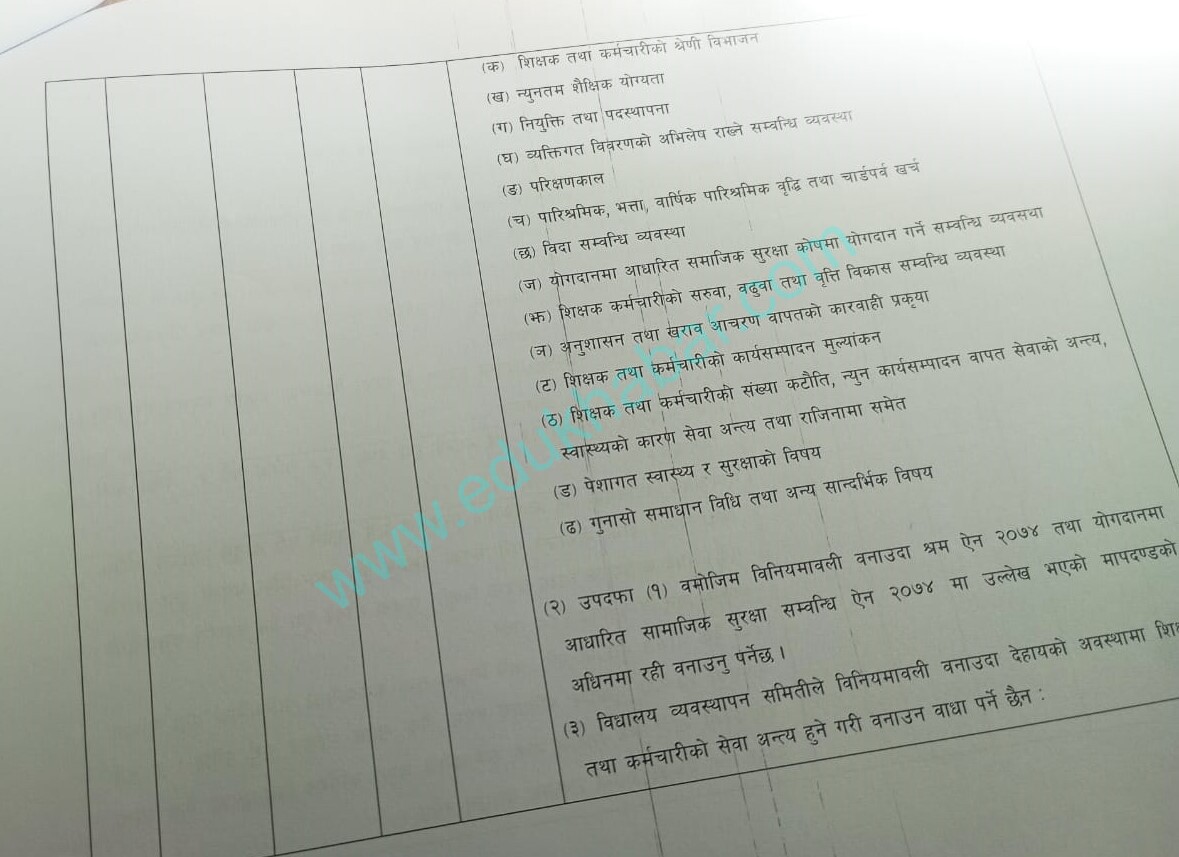 (क) शिक्षक तथा कर्मचारीको श्रेणी विभाजन
(ख) न्युनतम शैक्षिक योग्यता
(ग) नियुक्ति तथा पदस्थापना
(घ) व्यक्तिगत विवरणको अभिलेष राख्ने सम्वन्धि व्यवस्था
(ङ) परिक्षणकाल
(च) पारिश्रमिक, भत्ता, वार्षिक पारिश्रमिक वृद्धि तथा चार्डपर्व खर्च
(छ) विदा सम्वन्धि व्यवस्था
(ज) योगदानमा आधारित समाजिक सुरक्षा कोषमा योगदान गर्ने सम्वन्धि व्यवसथा
(झ) शिक्षक कर्मचारीको सरुवा, वढुवा तथा वृत्ति विकास सम्वन्धि व्यवस्था
(ञ) अनुशासन तथा खराव आचरण वापतको कारवाही प्रकृया
(ट) शिक्षक तथा कर्मचारीको कार्यसम्पादन मुल्यांकन
(ठ) शिक्षक तथा कर्मचारीको संख्या कटौति, न्युन कार्यसम्पादन वापत सेवाको अन्त्य,
स्वास्थ्यको कारण सेवा अन्त्य तथा राजिनामा समेत
(ड) पेशागत स्वास्थ्य र सुरक्षाको विषय
(ढ) गुनासो समाधान विधि तथा अन्य सान्दर्भिक विषय
(२) उपदफा (१) वमोजिम विनियमावली वनाउदा श्रम ऐन २०७४ तथा योगदानमा
आधारित सामाजिक सुरक्षा सम्वन्धि ऐन २०७४ मा उल्लेख भएको मापदण्डको
अधिनमा रही वनाउनु पर्नेछ।
(३) विधालय व्यवस्थापन समितीले विनियमावली वनाउदा देहायको अवस्थामा
तथा कर्मचारीको सेवा अन्त्य हुने गरी वनाउन वाधा पर्ने छैन :
www.edukhabar.com